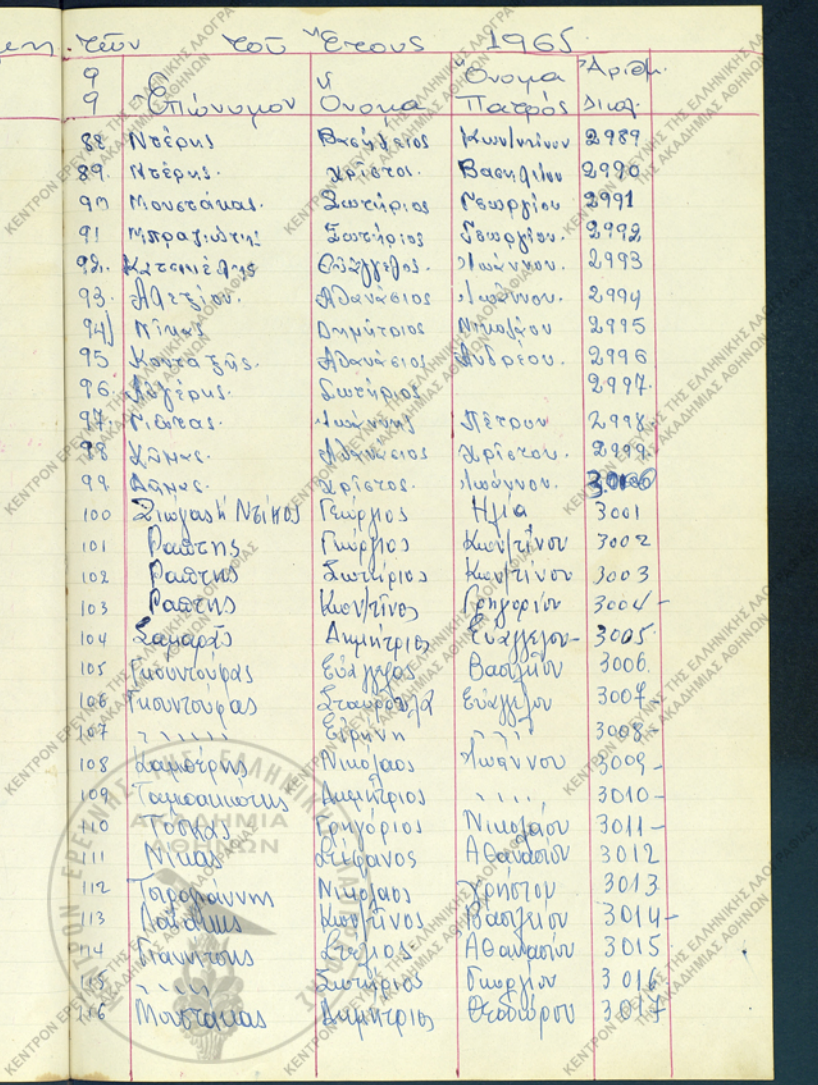 των του Έτους 1965.
Επώνυμον Όνομα Όνομα Πατρός Αριθμ. Δικογ.
88. Ντέρης Βασίλειος Κων/ντίνου 2989
89. Ντέρης. Χρίστος. Βασιλείου 2990
90 Μουστάκας. Σωτήριος Γεωργίου 2991
91 Σωτήριος Γεωργίου. 2992
92. Ευάγγελος. Ιωάννου. 2993
93. Αλεξίου. Αθανάσιος Ιωάννου. 2994
94) Νίκας Δημήτριος Νικολάου 2995
95 Αθανάσιος Ανδρέου. 2996
96. Σωτήριος 2997.
97. Ιωάννης Πέτρου 2998
98 Αθανάσιος Χρίστου. 2999
99. Χρίστος. Ιωάννου. 3000
100 Ζιώγας ή Ντίνος Γεώργιος Ηλία 3001
101 Ράπτης Γεώργιος Κων/τίνου 3002
102 Ράπτης Σωτήριος Κων/τίνου 3003
103 Ράπτης Κων/τίνος Γρηγορίου 3004-
104 Σαμαράς Δημήτριος Ευάγγελου- 3005
105 Γκουντούφας Ευάγγελος Βασιλείου 3006.
106 Γκουντούφας Σταυρούλα Ευαγγέλου 3007-
107 〃 Ειρήνη 〃 3008-
108 Νικόλαος Ιωάννου 3009-
109 Δημήτριος 〃 3010-
110 Τόσκας Γρηγόριος Νικολάου 3011-
111 Νίκας Στέφανος Αθανασίου 3012
112 Τσιρογιάννη Νικόλαος Χρήστου 3013
113 Κων/τίνος Βασιλείου 3014-
114 Στέλιος- Αθανασίου 3015
115 〃 Σωτήριος Γεωργίου 3016
116 Μουστακας Δημήτριος Θεοδώρου 3017
ΚΕΝΤΡΟΝ ΕΡΕΥΝΗΣ ΤΗΣ ΕΛΛΗΝΙΚΗΣ ΛΑΟΓΡΑΦΙΑΣ
ΤΗΣ ΑΚΑΔΗΜΙΑΣ ΑΘΗΝΩΝ